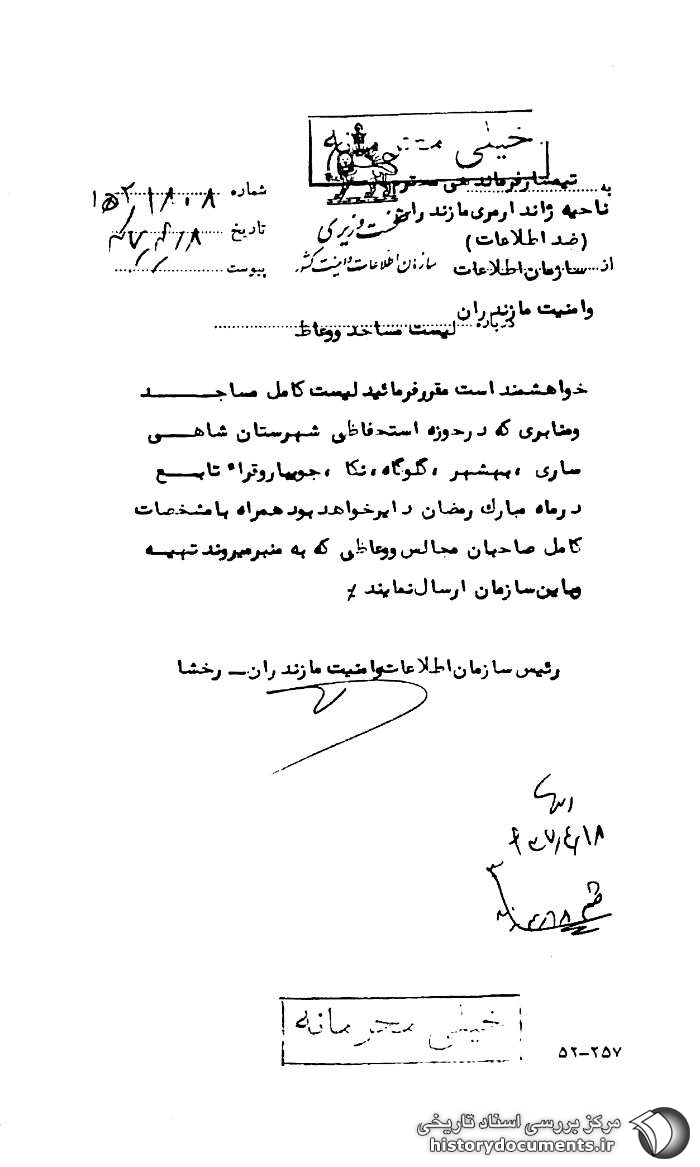 خیلی محرمانه
به تیمسار فرماندهی محترم
ناحیه ژاندارمری مازندران
(ضد اطلاعات)
از سازمان اطلاعات
وامنیت مازندران
نخست وزیری
سازمان اطلاعات وامنیت کشور
شماره
تاریخ
پیوست
درباره لیست مساجد ووعاظ
خواهشمند است مقررفرمائید لیست کامل مساجد
ومنابری که درحوزه استحفاظی شهرستان شاهی
ساری ، بهشهر ، گلوگاه ، نکا ، جویباروقراء تابع
درماه مبارك رمضان دایرخواهد بود همراه بامشخصات
کامل صاحبان مجالس ووعاظی که به منبرمیروند تهیه
وباین سازمان ارسال نمایند
رئیس سازمان اطلاعات وامنیت مازندران ـ رخشا
خیلی محرمانه
۵۲-۲۵۷
مرکز بررسی اسناد تاریخی
historydocuments.ir